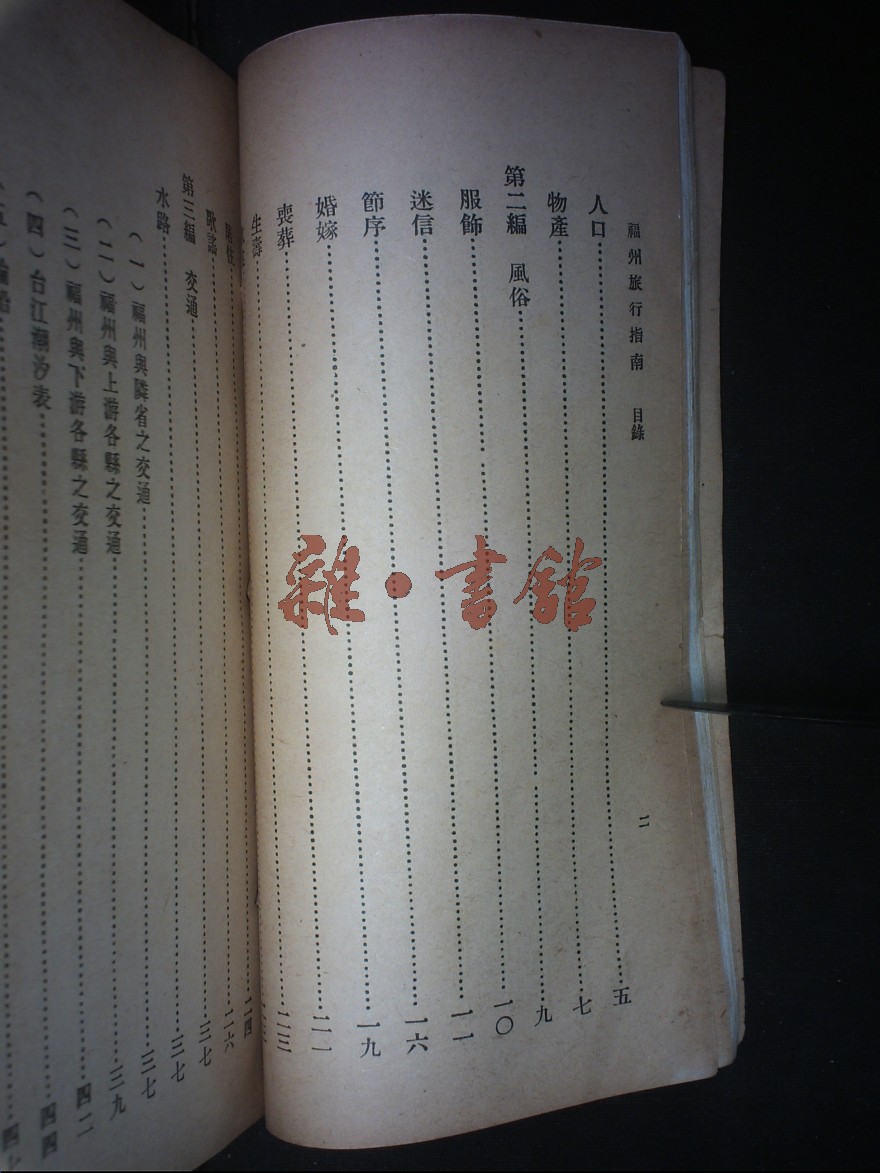 福州旅行指南 目錄 二
人口……五
物產……七
第二編 風俗……九
服飾……一〇
迷信……一一
節序……一六
婚嫁……一九
喪葬……二一
生壽……二三
歌謠……二六
第三編 交通……三七
水路……三七
(一)福州與隣省之交通……三七
(二)福州與上游各縣之交通……三九
(三)福州與下游各縣之交通……四二
(四)台江潮汐表……四四
雜·書館